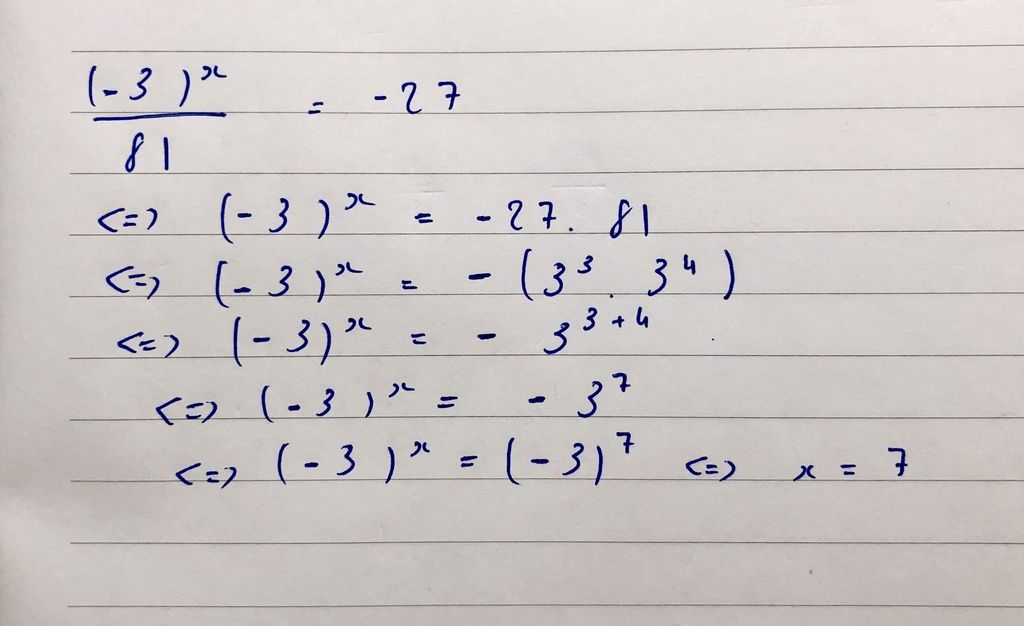 (-3)^x / 81 = -27
<=> (-3)^x = -27 . 81
<=> (-3)^x = -(3^3 . 3^4)
<=> (-3)^x = - 3^{3+4}
<=> (-3)^x = - 3^7
<=> (-3)^x = (-3)^7 <=> x = 7